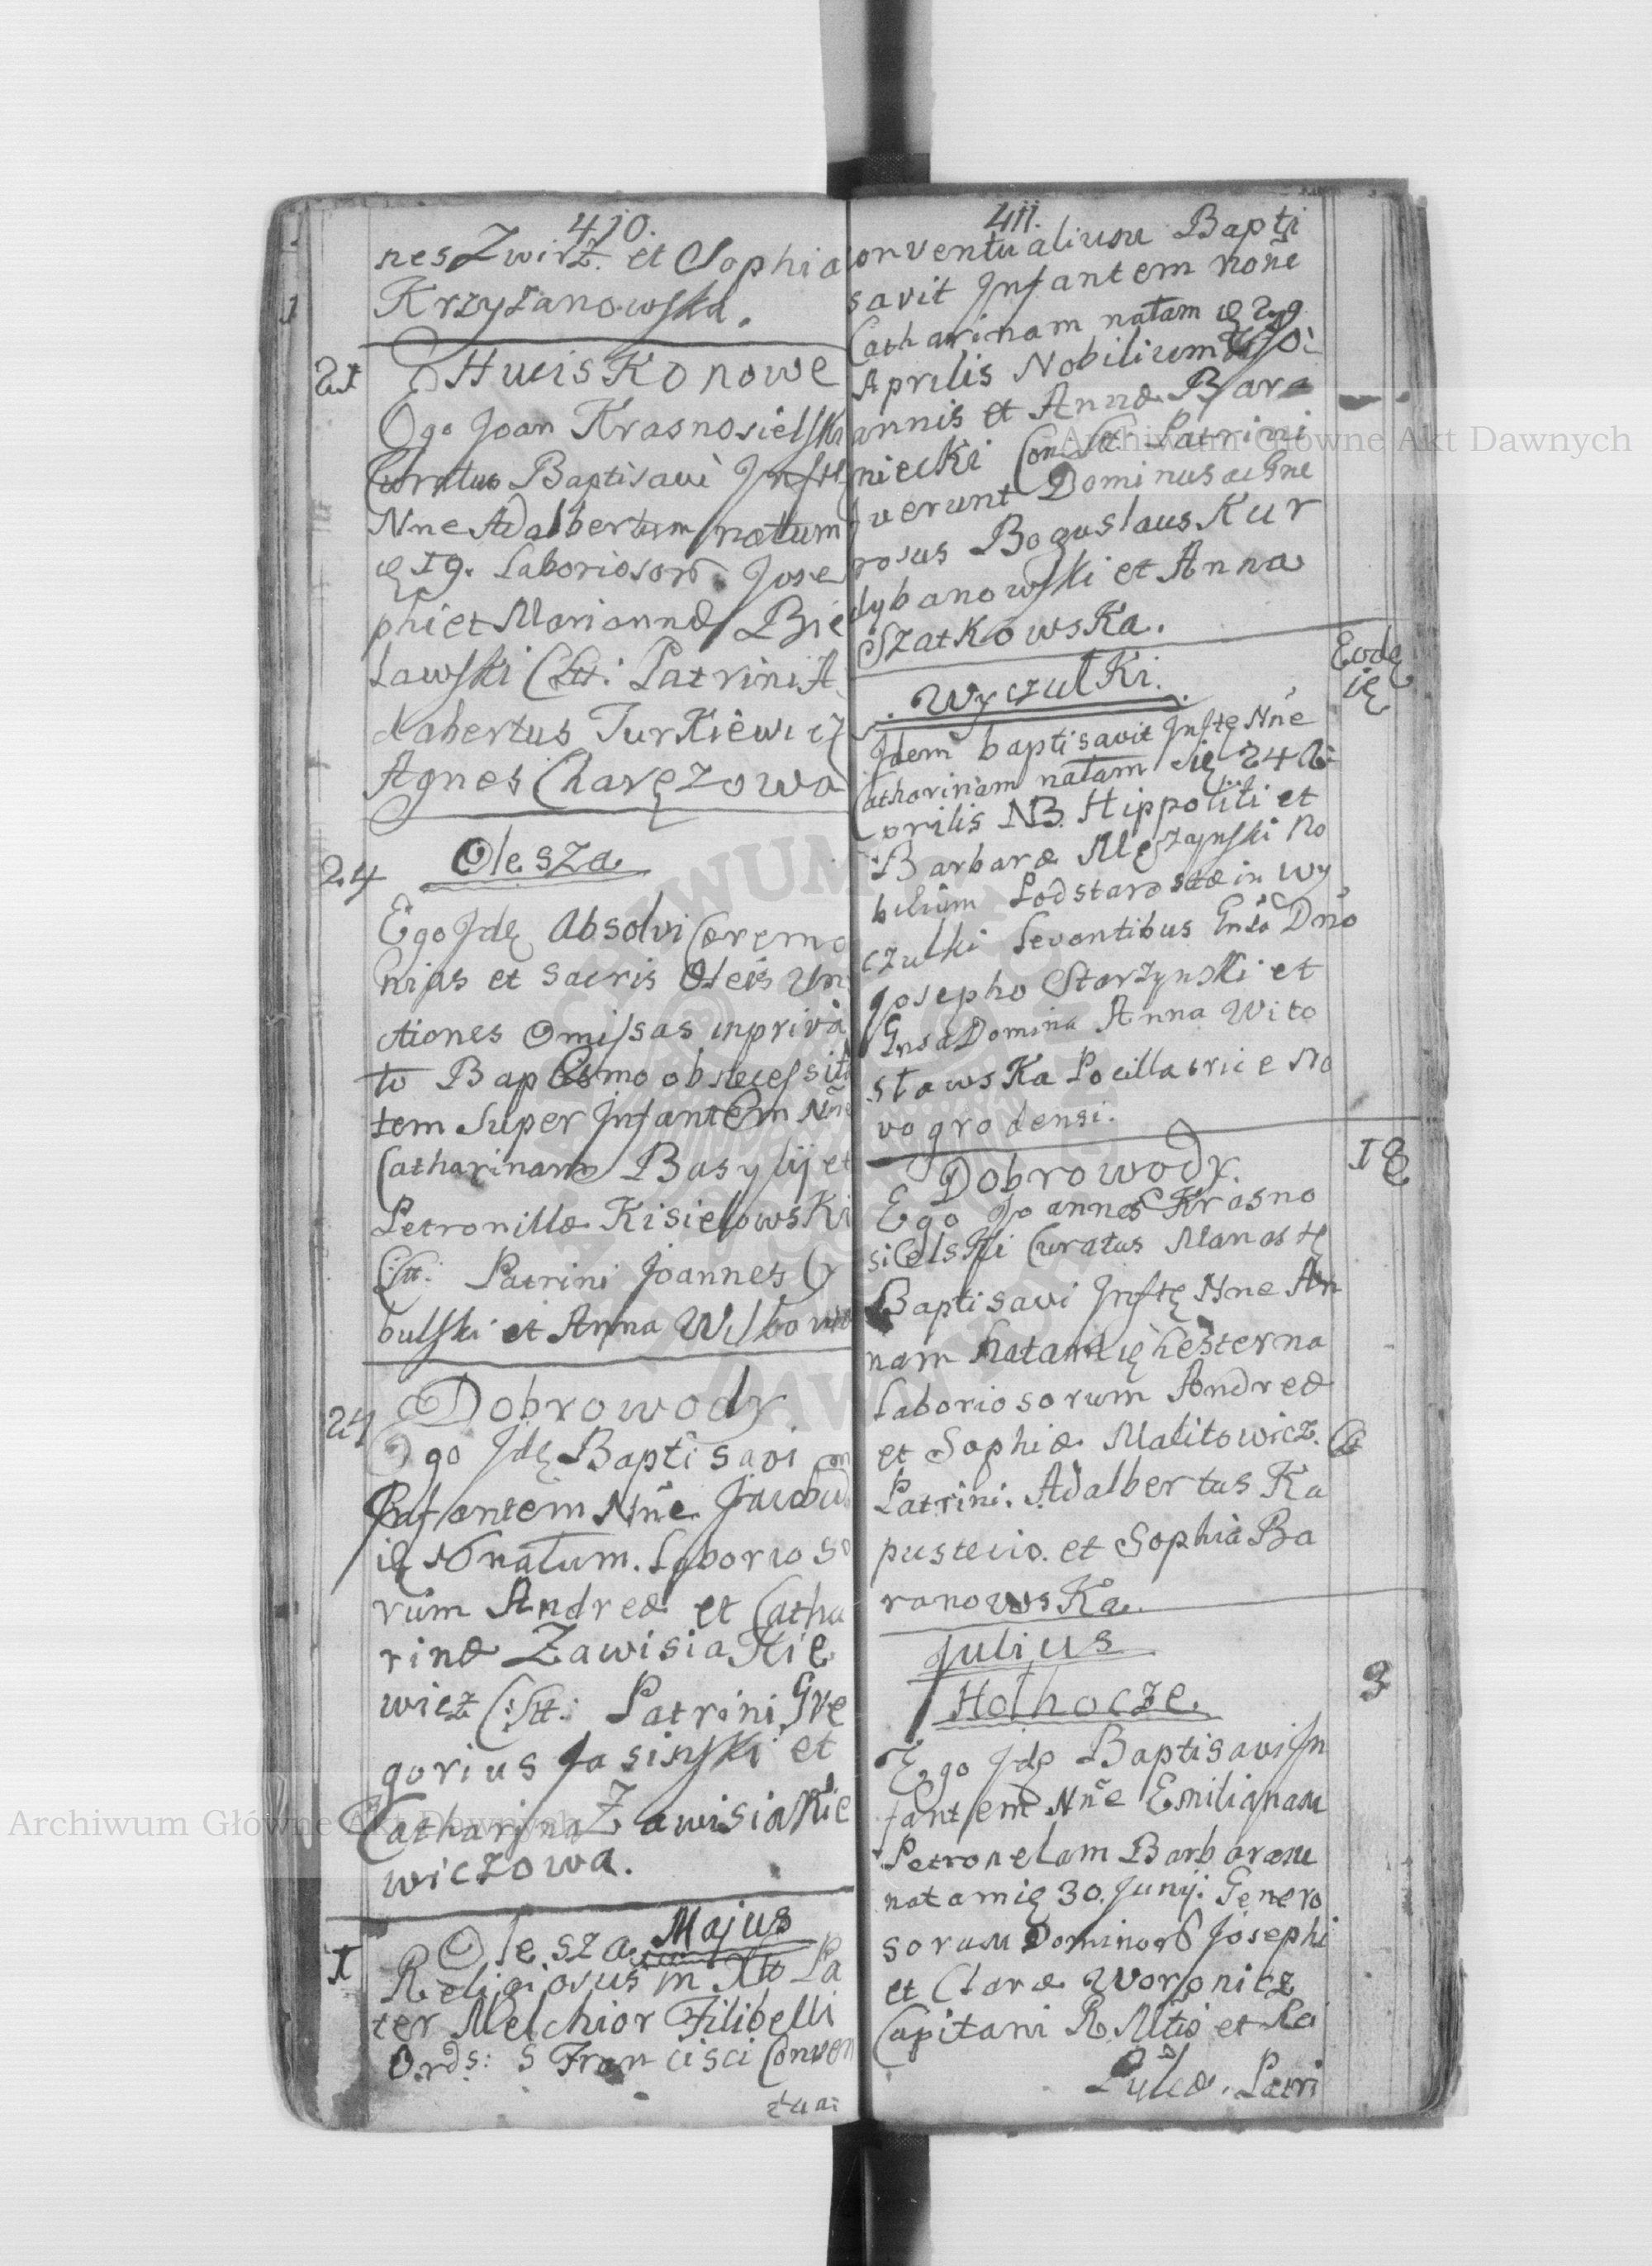 410.
nes Zwirz. et Sophia
Krzyżanowska.
21 Huciskonowe
Ego Joan Krasnosielski
Curatus Baptisavi Inftę
Nne Adalbertum natum
ię 19. Laboriosorū Jose
phi et Mariannæ Bie
lawski C:S:tt: Patrini A
dabertus Turkiewicz
Agnes Charęzowa
24 Olesza
Ego Idę Absolvi Cæremo
nias et Sacris Oleis Un
ctiones Omissas in priva
to Baptismo ob necessita
tem Super Infantem Nne
Catharinam Basylij et
Petronillæ Kisielowski
C:S:tt: Patrini Joannes Cy
bulski et Anna
24 Dobrowody
Ego Idę Baptisavi
Infantem Nñe Jacobum
ię natum. Laborioso
rum Andreæ et Catha
rinæ Zawisiakie
wicz C:S:tt: Patrini Gre
gorius Jasinski et
Catharina Zawisiakie
wiczowa.
Majus
1 Olesza
Religiosus in Xto Pa
ter Melchior Filibelli
Ords: S Francisci Conven
tua:
411.
onventualium Bapti
savit Infantem noñe
Catharinam natam ię 29
Aprilis Nobilium Jo
annis et Annæ Bara
niecki Con: Patrini
fuerunt Dominus ac Gne
rosus Boguslaus Kur
dybanowski et Anna
Szatkowska.
Eodę
ię
Wyczulki.
Idem baptisavit Inftę Nñe
Catharinam natam ię 24 A
prilis NB. Hippoliti et
Barbaræ Mężaynski No
bilium Podstarostæ in Wy
czulki Levantibus Gnso Dño
Josepho Starzynski et
Gnsa Domina Anna Wito
sławska Pocillatrice No
vogrodensi.
18
Dobrowody.
Ego Joannes Krasno
sielski Curatus Manastę
Baptisavi Inftę Nne An
nam Natam ię hesterna
Laboriosorum Andreæ
et Sophiæ Malitowicz.
Patrini. Adalbertus Ka
pustecio. et Sophia Ba
ranowska.
Julius
3
Holhocze.
Ego Idę Baptisavi In
fantem Nñe Emilianam
Petronelam Barbaram
natam ię 30. Junij. Genero
sorum Dominorū Josephi
et Claræ Woronicz
Capitani R. Mtis et Rei
Pulcæ. Patri
Archiwum Główne Akt Dawnych
Archiwum Główne Akt Dawnych